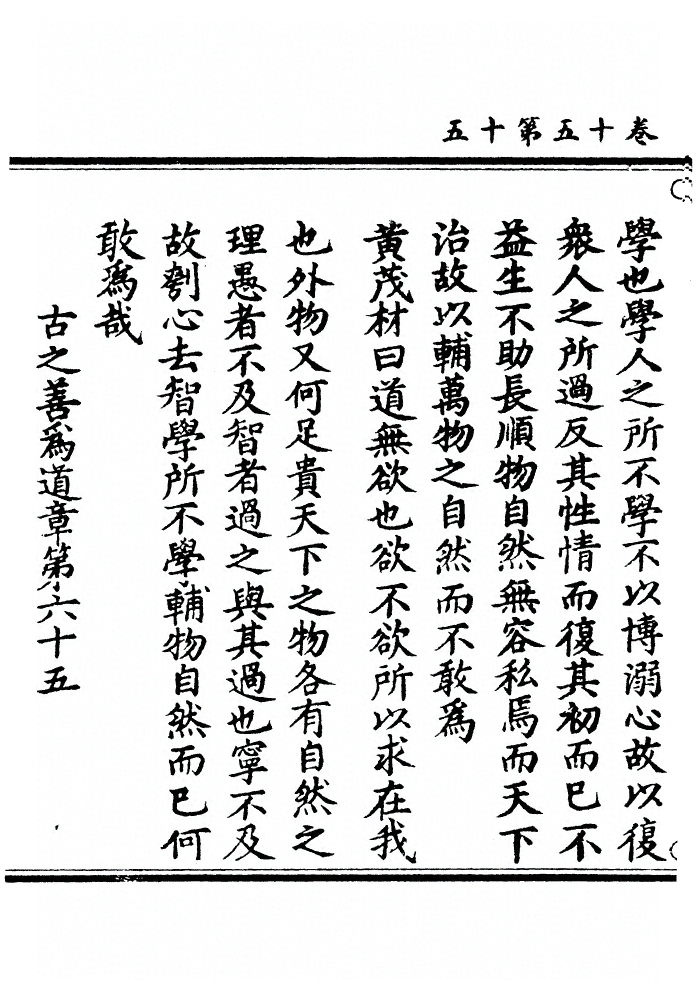 卷十五第十五
學也學人之所不學不以博溺心故以復
衆人之所過反其性情而復其初而已不
益生不助長順物自然無容私焉而天下
治故以輔萬物之自然而不敢爲
黃茂材曰道無欲也欲不欲所以求在我
也外物又何足貴天下之物各有自然之
理愚者不及智者過之與其過也寧不及
故刳心去智學所不學輔物自然而已何
敢爲哉
古之善爲道章第六十五